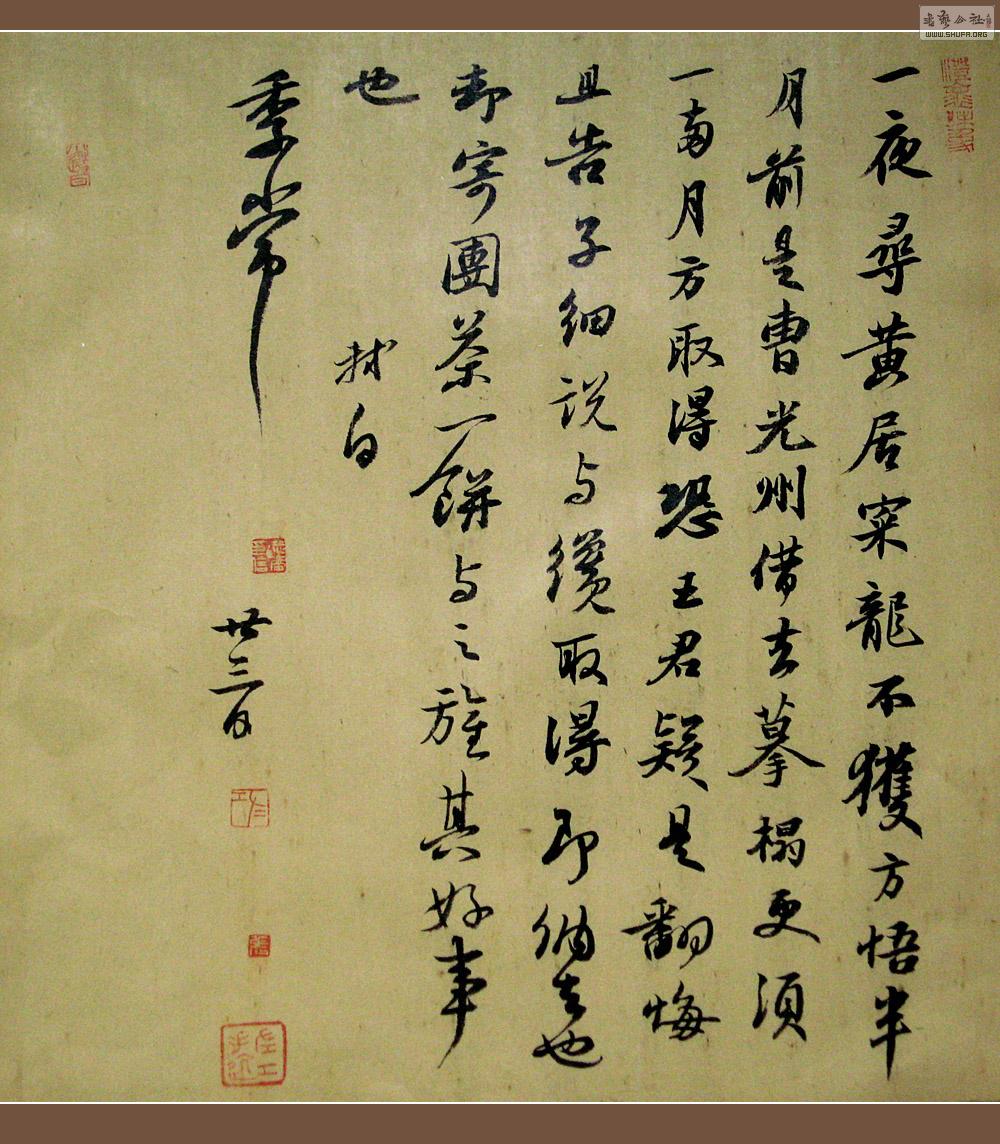 一夜尋黃居寀龍不獲方悟半
月前是曹光州借去摹搨更須
一兩月方取得恐王君疑是翻悔
且告子細說与纔取得即納去也
却寄團茶一餅与之旌其好事
也
軾白
季常
廿三日
WWW.SHUFA.ORG